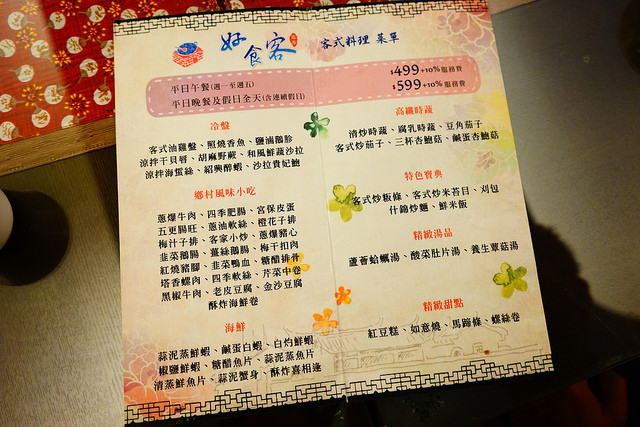 好食客
客式料理 菜單
平日午餐(週一至週五) $499+10%服務費
平日晚餐及假日全天(含連續假日) $599+10%服務費
冷盤
客式油雞盤、照燒香魚、鹽滷鵝胗
涼拌干貝唇、胡麻野蕨、和風鮮蔬沙拉
涼拌海蜇絲、紹興醉蝦、沙拉貴妃鮑
鄉村風味小吃
蔥爆牛肉、四季肥腸、宮保皮蛋
五更腸旺、蔥油軟絲、橙花子排
梅汁子排、客家小炒、蔥爆豬心
韭菜鵝腸、薑絲鵝腸、梅干扣肉
紅燒豬腳、韭菜鴨血、糖醋排骨
塔香螺肉、四季軟絲、芹菜中卷
黑椒牛肉、老皮豆腐、金沙豆腐
酥炸海鮮卷
海鮮
蒜泥蒸鮮蝦、鹹蛋白蝦、白灼鮮蝦
椒鹽鮮蝦、糖醋魚片、蒜泥蒸魚片
清蒸鮮魚片、蒜泥蟹身、酥炸喜相逢
高纖時蔬
清炒時蔬、腐乳時蔬、豆角茄子
客式炒茄子、三杯杏鮑菇、鹹蛋杏鮑菇
特色寶典
客式炒粄條、客式炒米苔目、刈包
什錦炒麵、鮮米飯
精緻湯品
蘆薈蛤蠣湯、酸菜肚片湯、養生蕈菇湯
精緻甜點
紅豆糕、如意燒、馬蹄條、螺絲卷